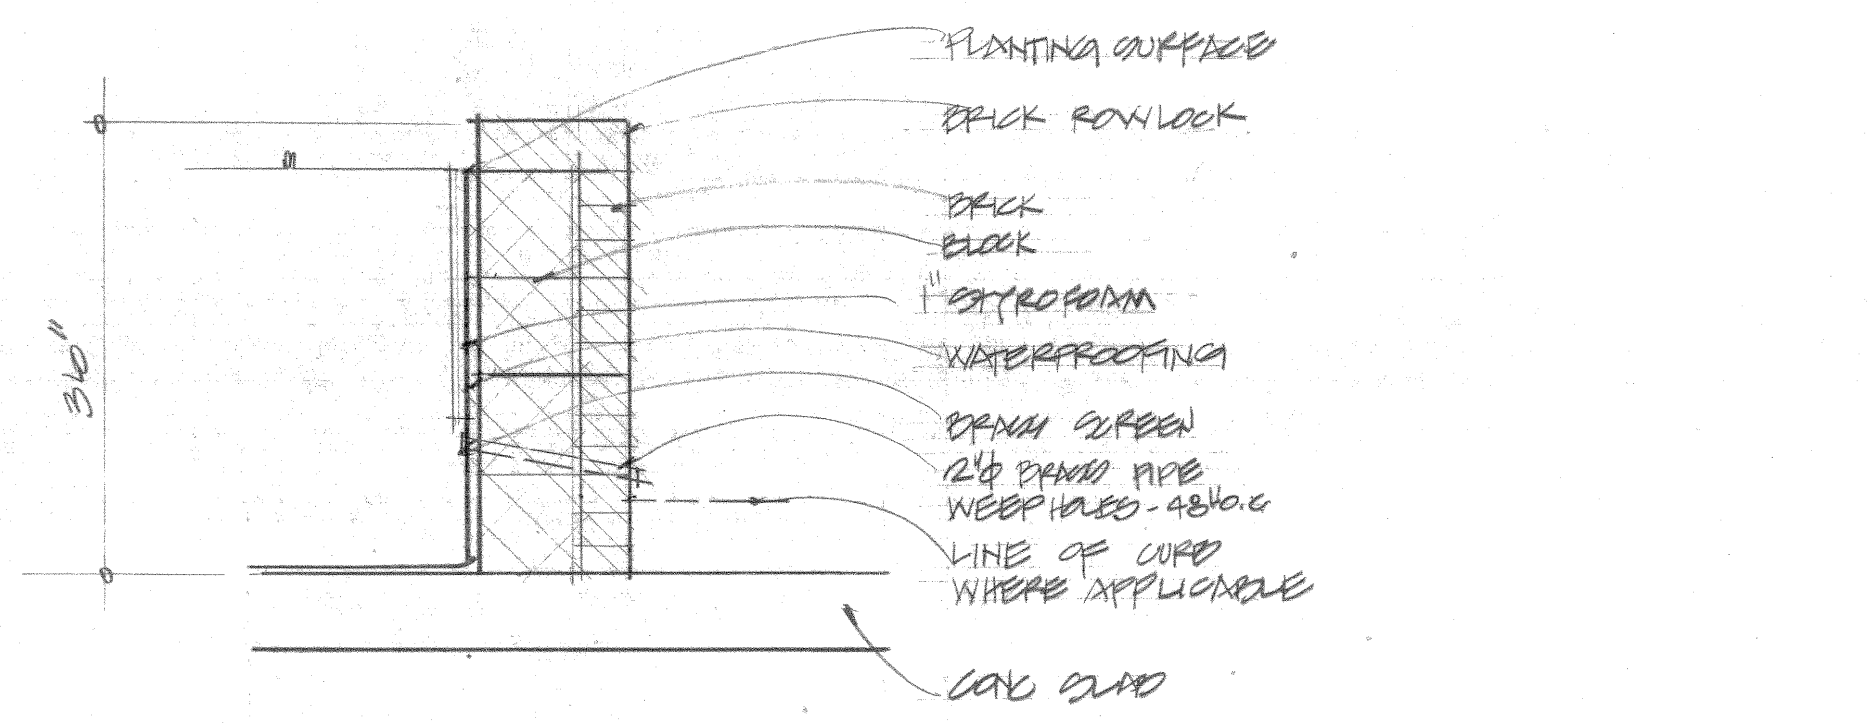 PLANTING SURFACE
BRICK ROWLOCK
BRICK
BLOCK
1" STYROFOAM
WATERPROOFING
BRASS SCREEN
2"φ BRASS PIPE
WEEPHOLES - 48" O.C
LINE OF CURB
WHERE APPLICABLE
CONC SLAB
36"